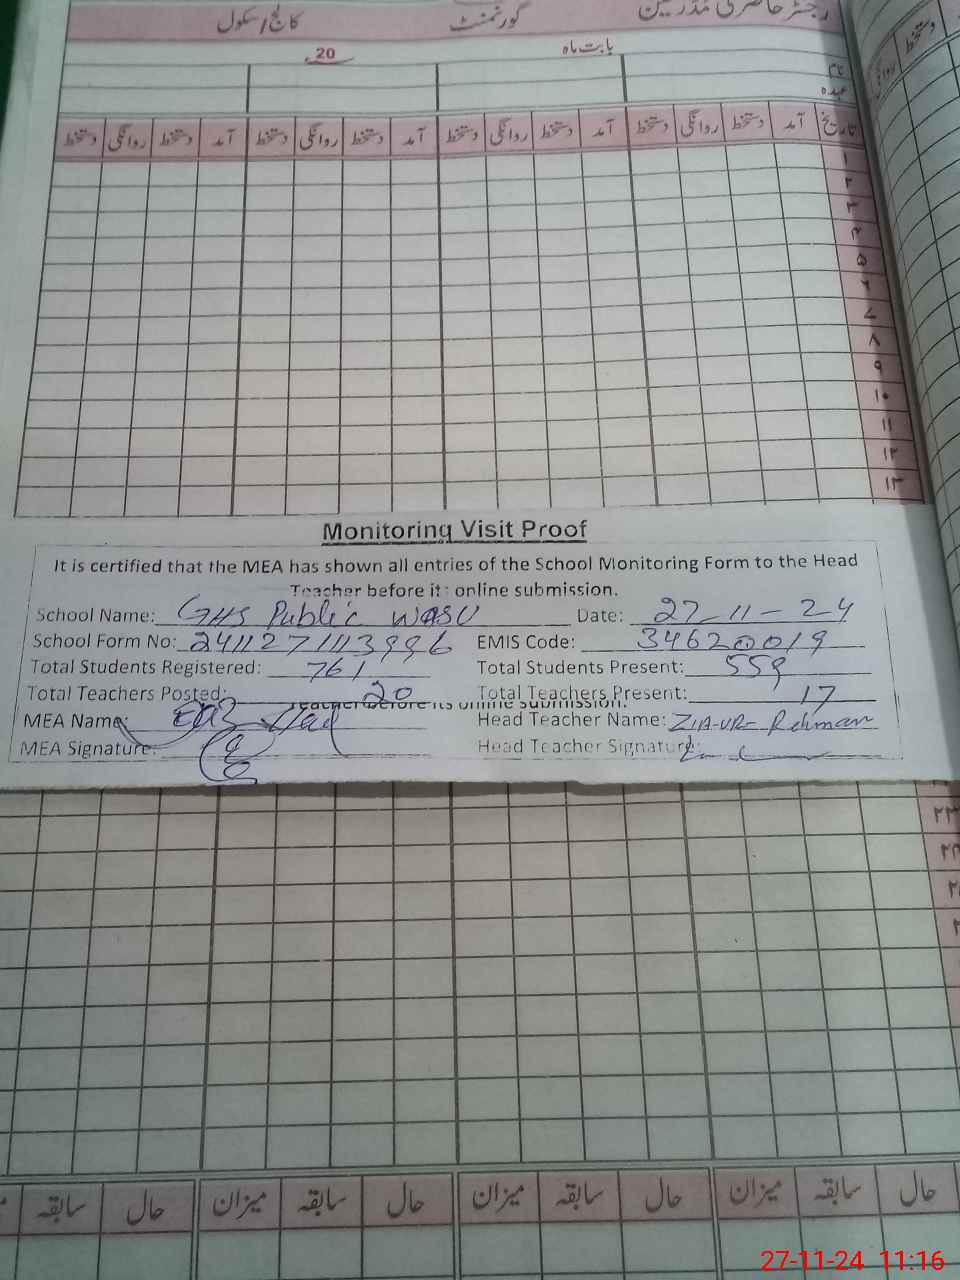 رجسٹر حاضری مدرسین
گورنمنٹ کالج/سکول
بابت ماہ 20
نام
عہدہ
تاریخ آمد دستخط روانگی دستخط آمد دستخط روانگی دستخط آمد دستخط روانگی دستخط آمد دستخط روانگی دستخط
۱
۲
۳
۴
۵
۶
۷
۸
۹
۱۰
۱۱
۱۲
۱۳
Monitoring Visit Proof
It is certified that the MEA has shown all entries of the School Monitoring Form to the Head
Teacher before its online submission.
School Name: GHS Public WASU Date: 27-11-24
School Form No: 24112711113996 EMIS Code: 34620019
Total Students Registered: 761 Total Students Present: 559
Total Teachers Posted: 20 Total Teachers Present: 17
Teacher before its online submission.
MEA Name: Head Teacher Name: ZIA-UR-Rehman
MEA Signature: Head Teacher Signature:
۲۳
۲۴
حال سابقہ میزان حال سابقہ میزان حال سابقہ میزان حال سابقہ
27-11-24 11:16